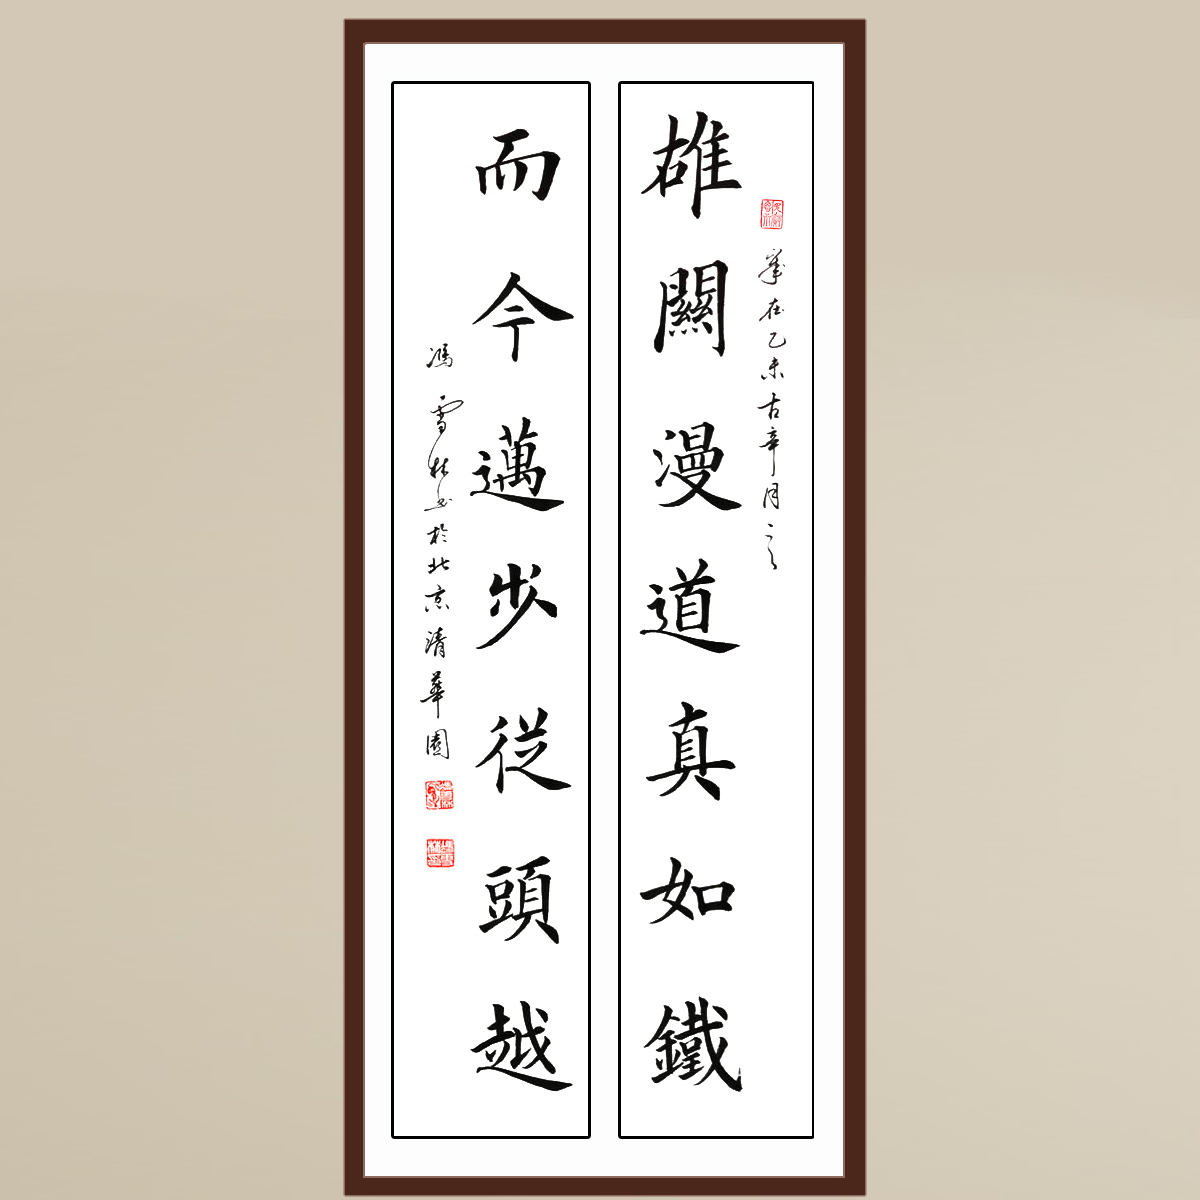 歲在乙未古辛月之
雄關漫道真如鐵
而今邁步從頭越
馮雪林书於北京清華園